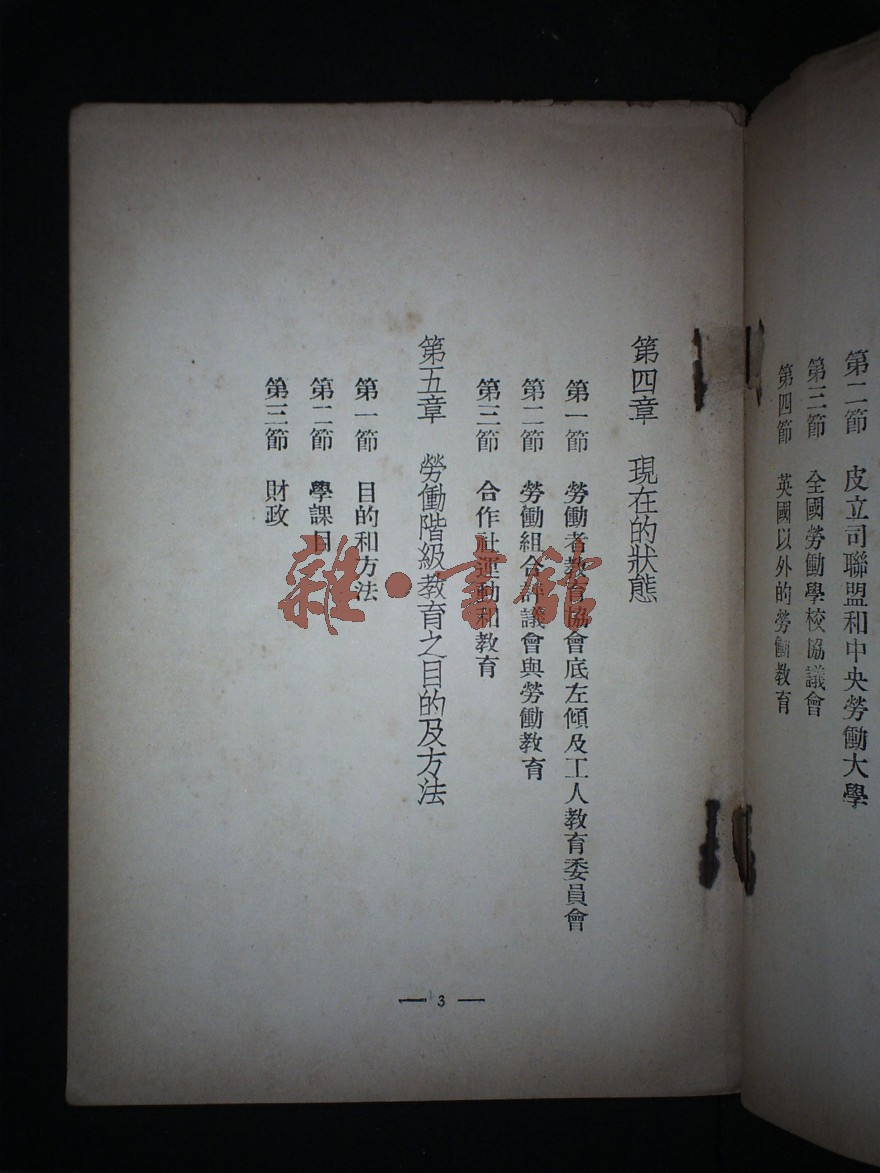 第二節 皮立司聯盟和中央勞働大學
第三節 全國勞働學校協議會
第四節 英國以外的勞働教育
第四章 現在的狀態
第一節 勞働者教育協會底左傾及工人教育委員會
第二節 勞働組合評議會與勞働教育
第三節 合作社運動和教育
第五章 勞働階級教育之目的及方法
第一節 目的和方法
第二節 學課目
第三節 財政
— 3 —
雜·書館